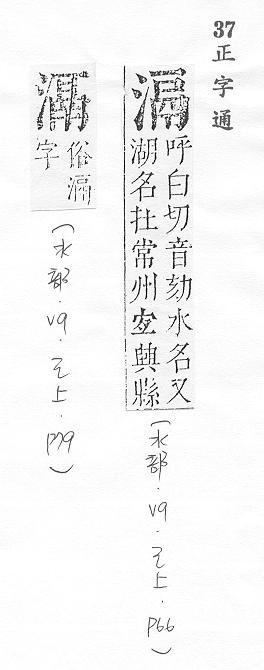 37正字通
滆
呼白切音劾水名又
湖名在常州宐興縣
(水部.V9.巳上.P66)
俗滆
字
(水部.V9.巳上.P79)